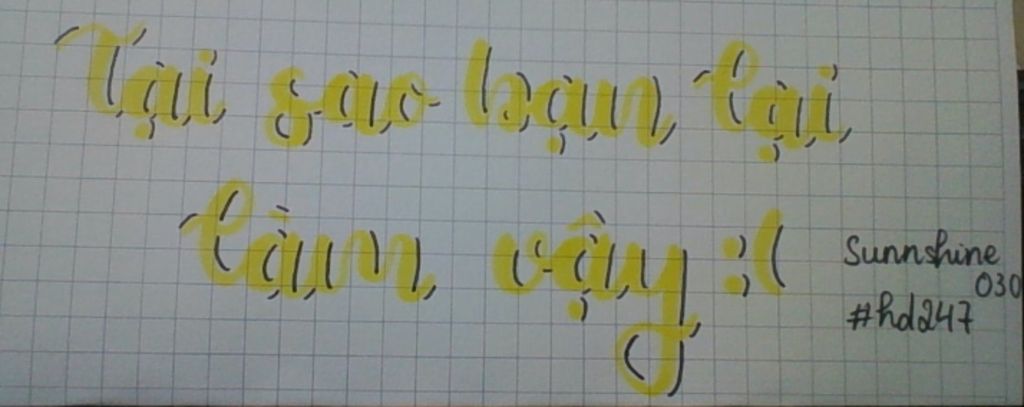 Tại sao bạn lại
làm vậy :(
Sunnshine
030
#hd247